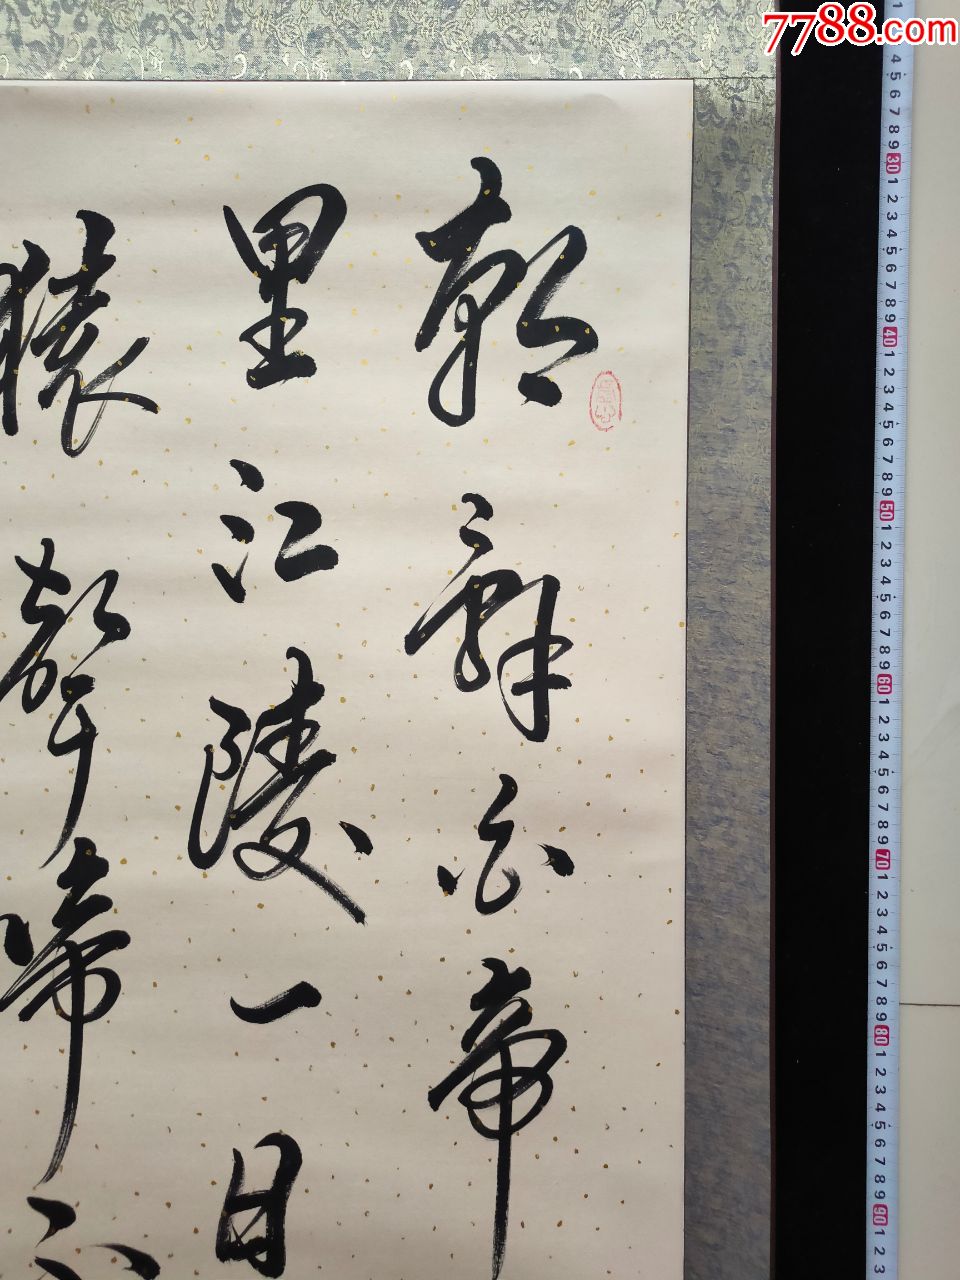 7788.com
朝辞白帝
里江陵一日
猿声啼不
1
4 5 6 7 8 9 30 1 2 3 4 5 6 7 8 9 40 1 2 3 4 5 6 7 8 9 50 1 2 3 4 5 6 7 8 9 60 1 2 3 4 5 6 7 8 9 70 1 2 3 4 5 6 7 8 9 80 1 2 3 4 5 6 7 8 9 90 1 2 3